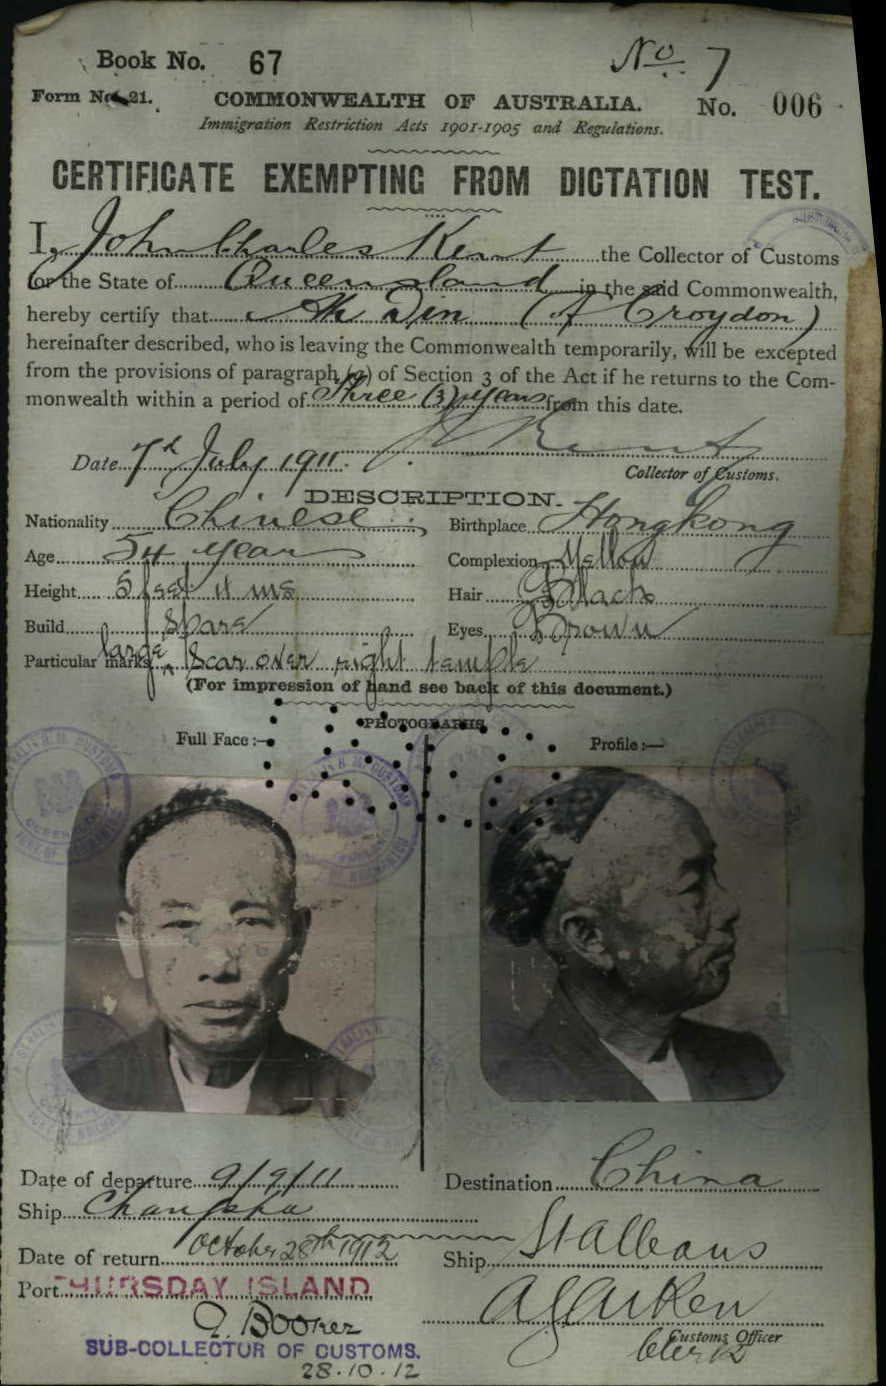 Book No. 67
No 7
Form No. 21.
COMMONWEALTH OF AUSTRALIA.
No. 006
Immigration Restriction Acts 1901-1905 and Regulations.
CERTIFICATE EXEMPTING FROM DICTATION TEST.
I, John Charles Kent the Collector of Customs
for the State of Queensland in the said Commonwealth,
hereby certify that Ah Din (of Croydon)
hereinafter described, who is leaving the Commonwealth temporarily, will be excepted
from the provisions of paragraph (a) of Section 3 of the Act if he returns to the Com-
monwealth within a period of Three (3) years from this date.
Date 7th July 1911. J C Kent
Collector of Customs.
DESCRIPTION.
Nationality Chinese Birthplace Hongkong
Age 54 years Complexion Yellow
Height 5 feet 4 ins Hair Black
Build Spare Eyes Brown
Particular marks large scar over right temple
(For impression of hand see back of this document.)
PHOTOGRAPHS
Full Face:— Profile:—
Date of departure 9/9/11 Destination China
Ship Changsha
Date of return October 28th 1912 Ship St Albans
Port THURSDAY ISLAND
SUB-COLLECTOR OF CUSTOMS.
28.10.12
Customs Officer
Clerk